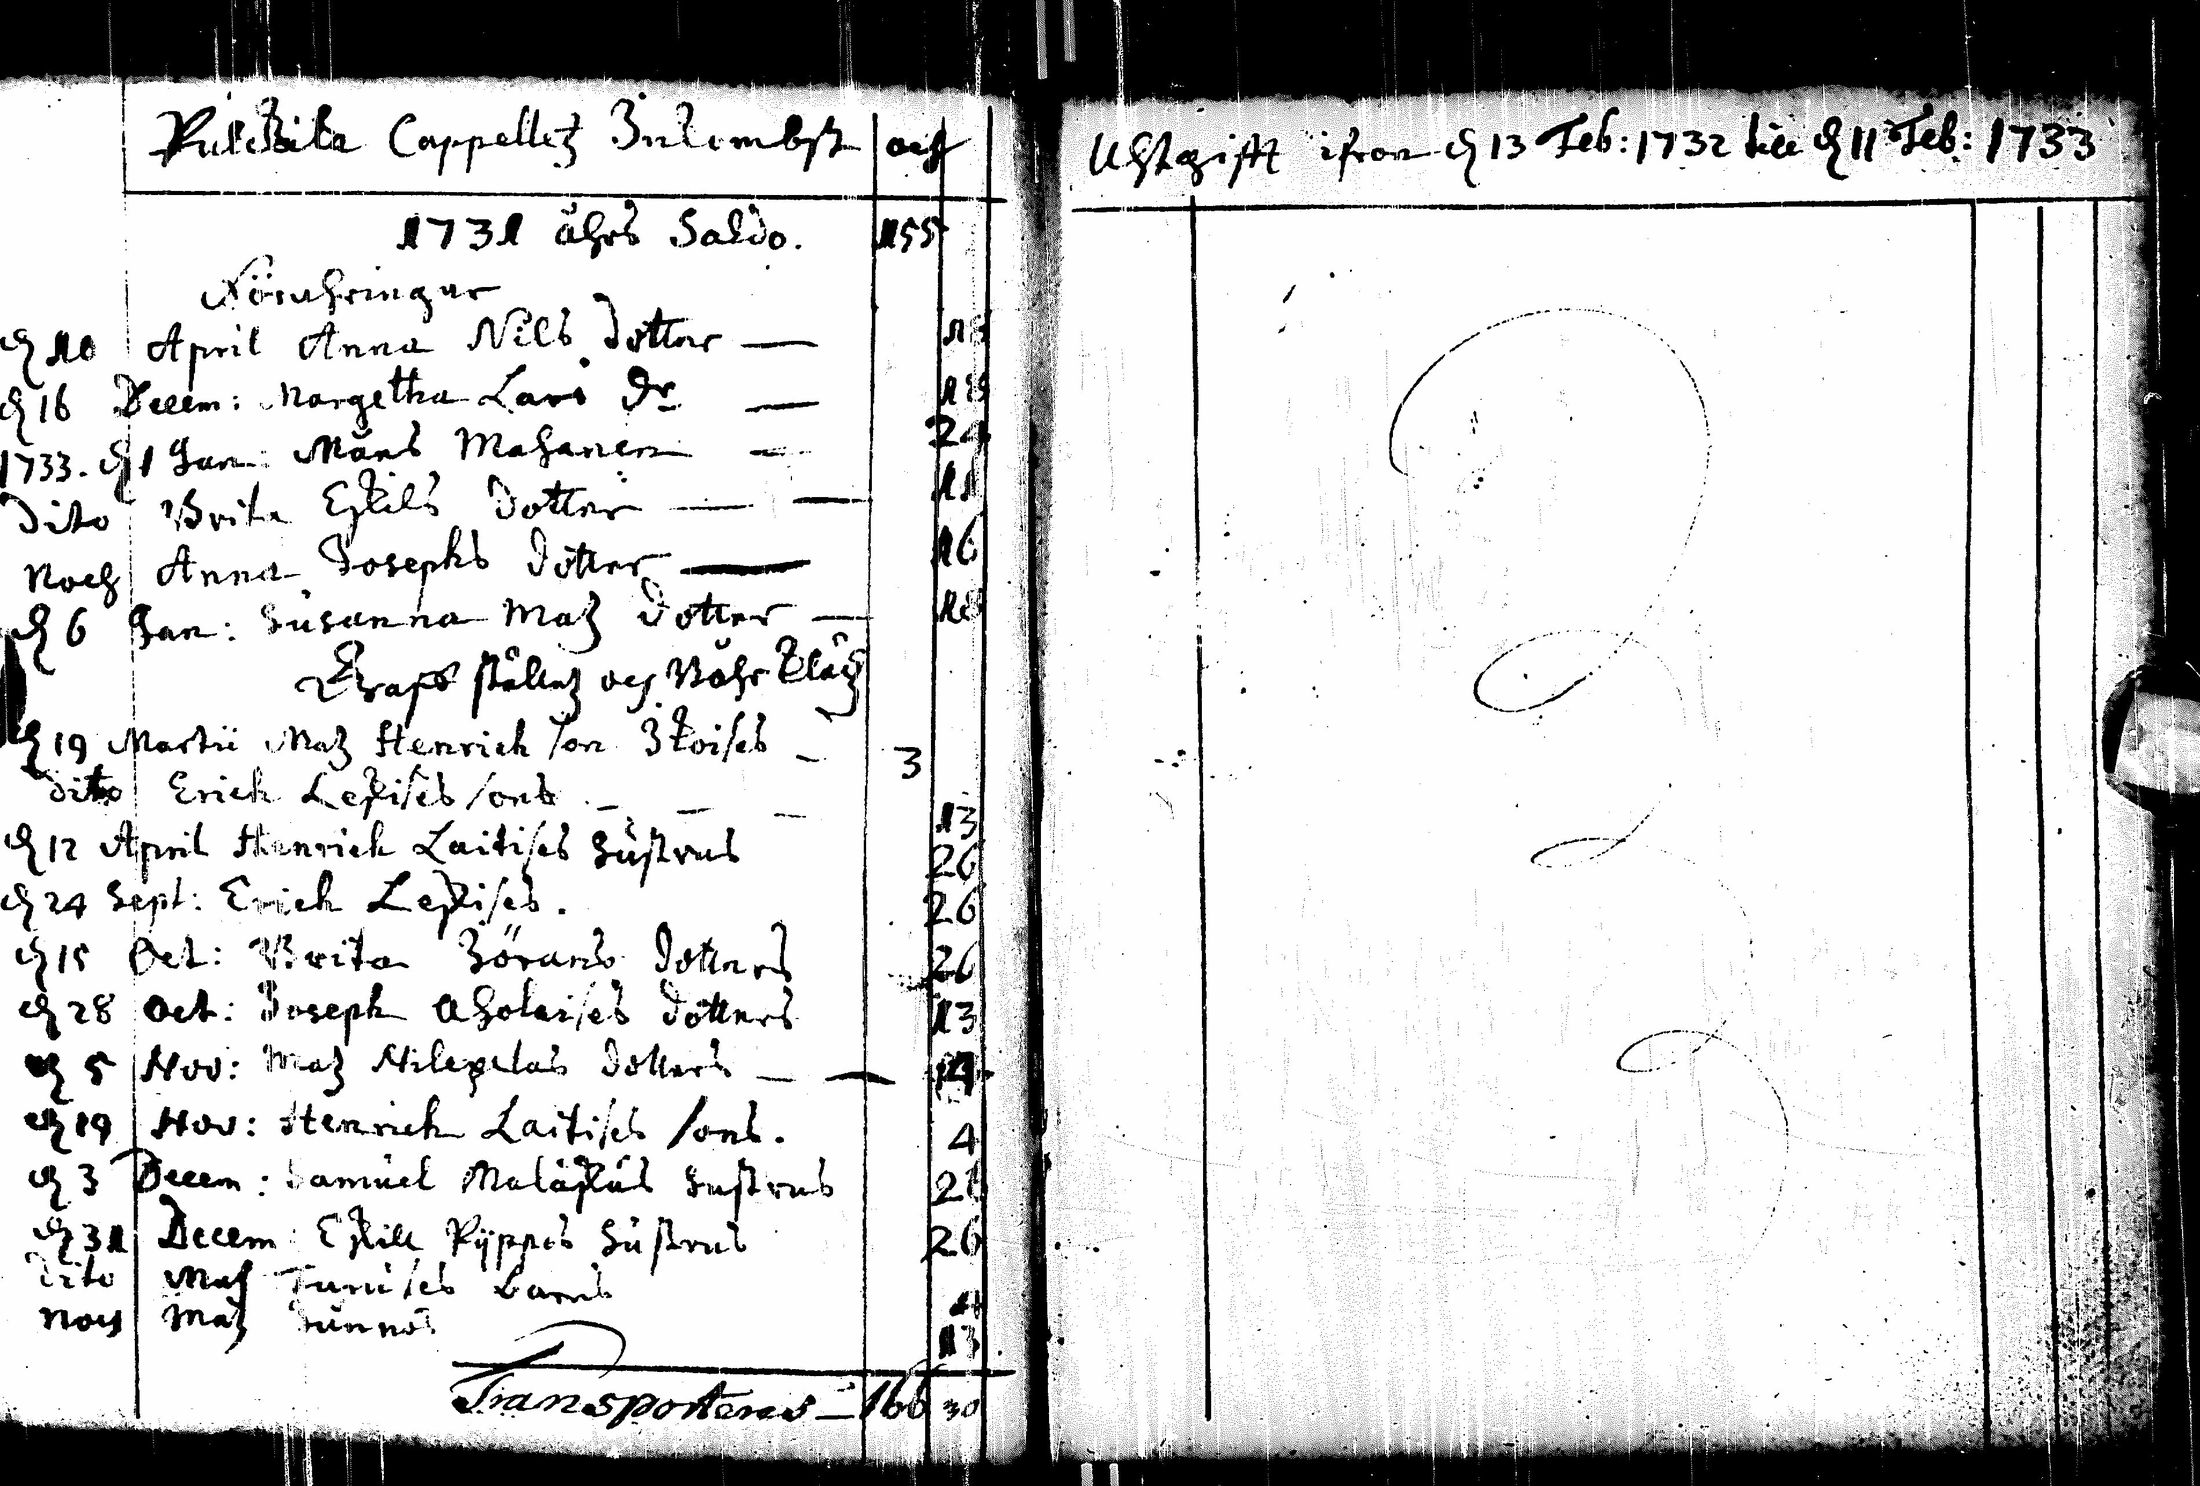 Pulckila Cappelletz Inkombst och
1731 åhrs Saldo. 155
Förähringar
d 10 April Anna Nils dotter — 18
d 16 Decem: Margetha Lars Dr — 18
1733. d 1 Jan: Måns Mahanen — 24
Dito Brita Eskils dotter — — 11
Noch Anna Josephs dotter — 16
d 6 Jan: Susanna Matz dotter — 18
ställetz och Båhr Kläd
d 19 Martii Matz Henrich son — 3
dito Erich Leskises sons — — — 13
d 12 April Henrich Laitises Hustrus 26
d 24 Sept: Erich Leskises. 26
d 15 Oct: Brita Görans dotters 26
d 28 Oct: Joseph Aholaises dotters 13
d 5 Nov: Matz dotters — —
d 19 Nov: Henrich Laitises sons. 4
d 3 Decem: Samuel Malaskas Hustrus 26
d 31 Decem: Eskill Pyppos Hustrus 26
Dito Matz Barns
Noch Matz 13
Transporteras — 166 30
Uhtgifft ifron d 13 Feb: 1732 till d 11 Feb: 1733